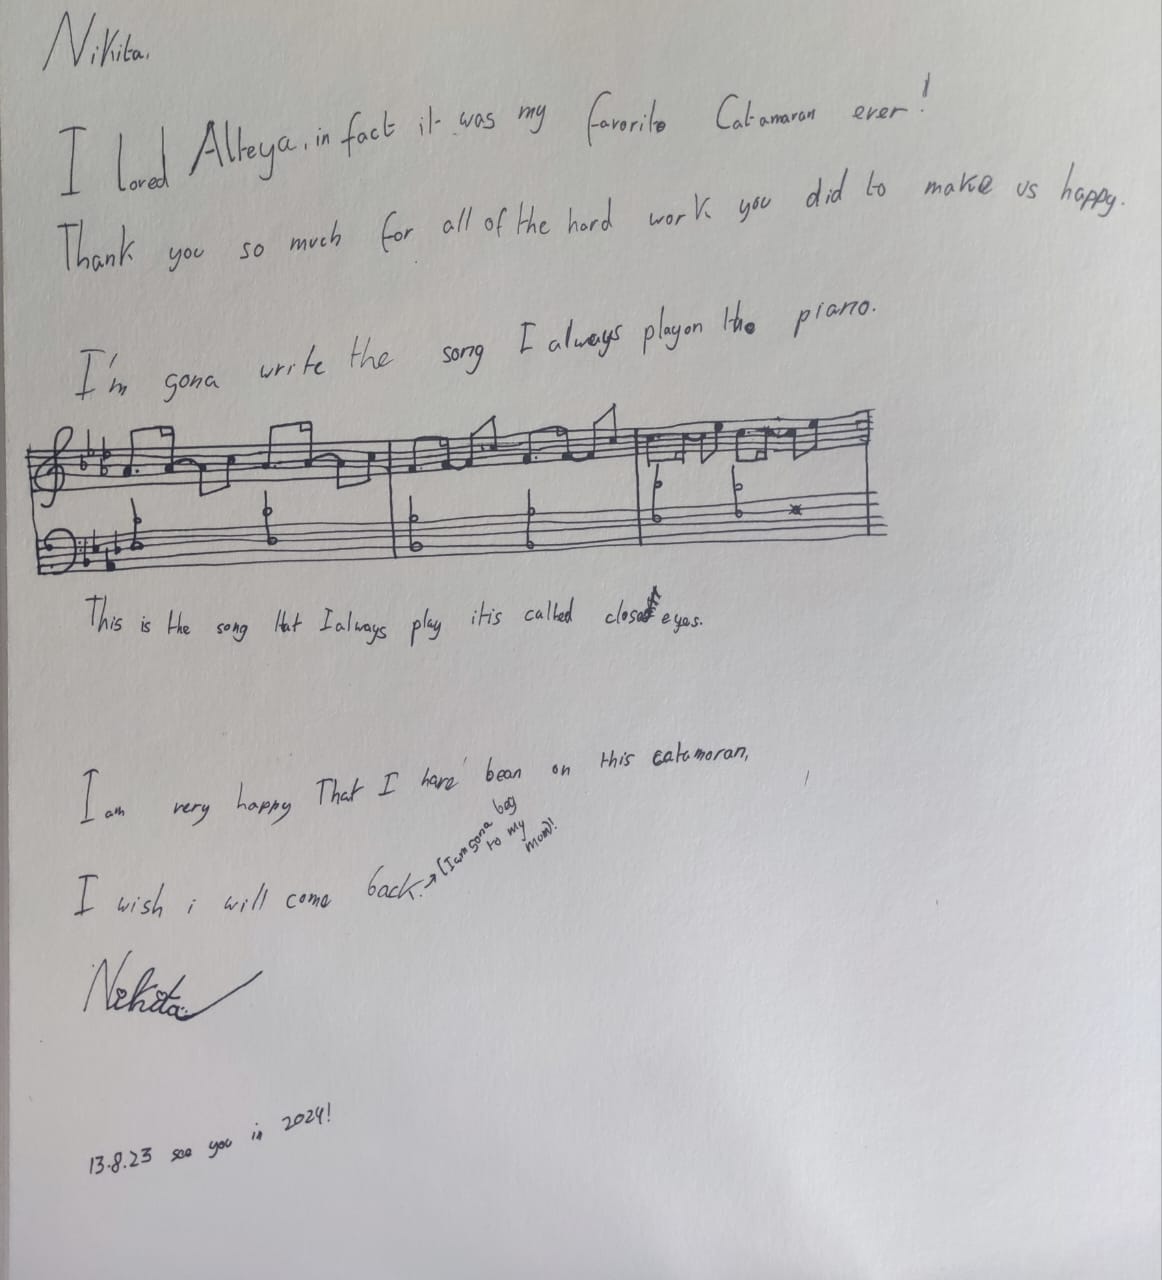 Nikita.
I loved Alteya, in fact it was my favorite Catamaran ever!
Thank you so much for all of the hard work you did to make us happy.
I'm gona write the song I always play on the piano.
This is the song that I always play it is called close eyes.
I am very happy That I have been on this catamaran,
I wish i will come back. → (I am gona beg
to my
mom!
Nikita
13.8.23 see you in 2024!